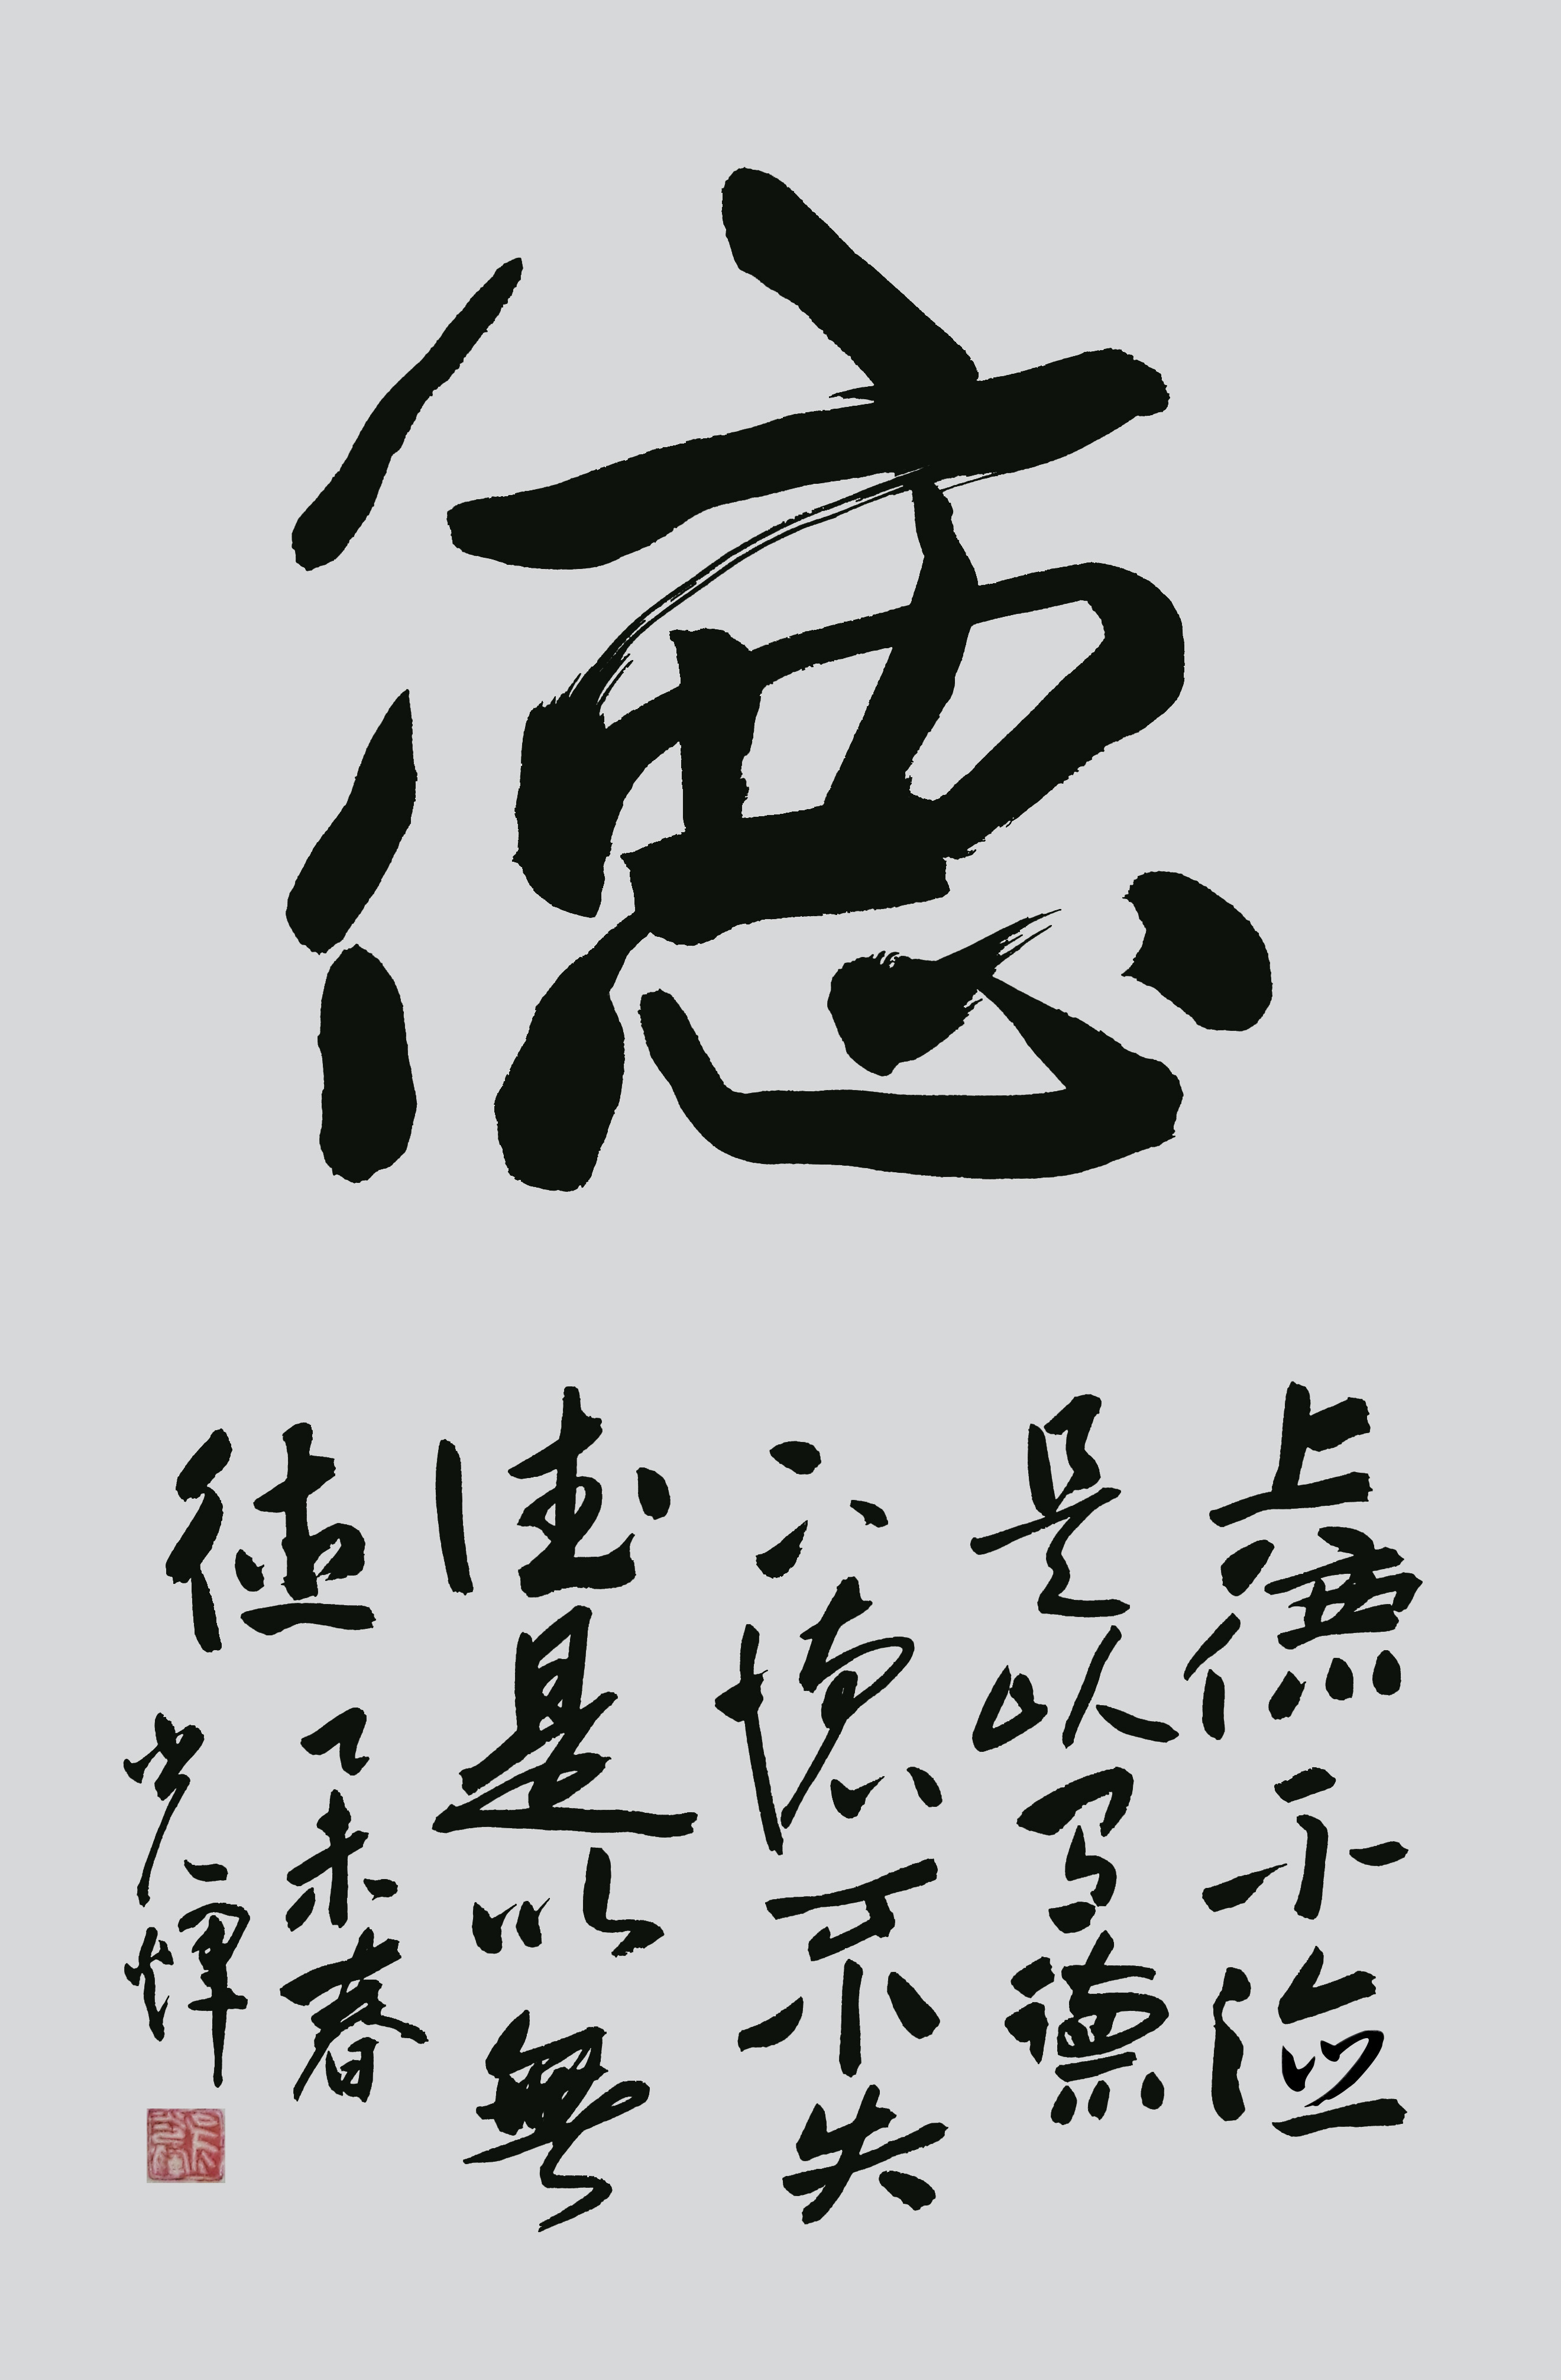 德
上德不德
是以有德
下德不失
德是以無
德
乙未春